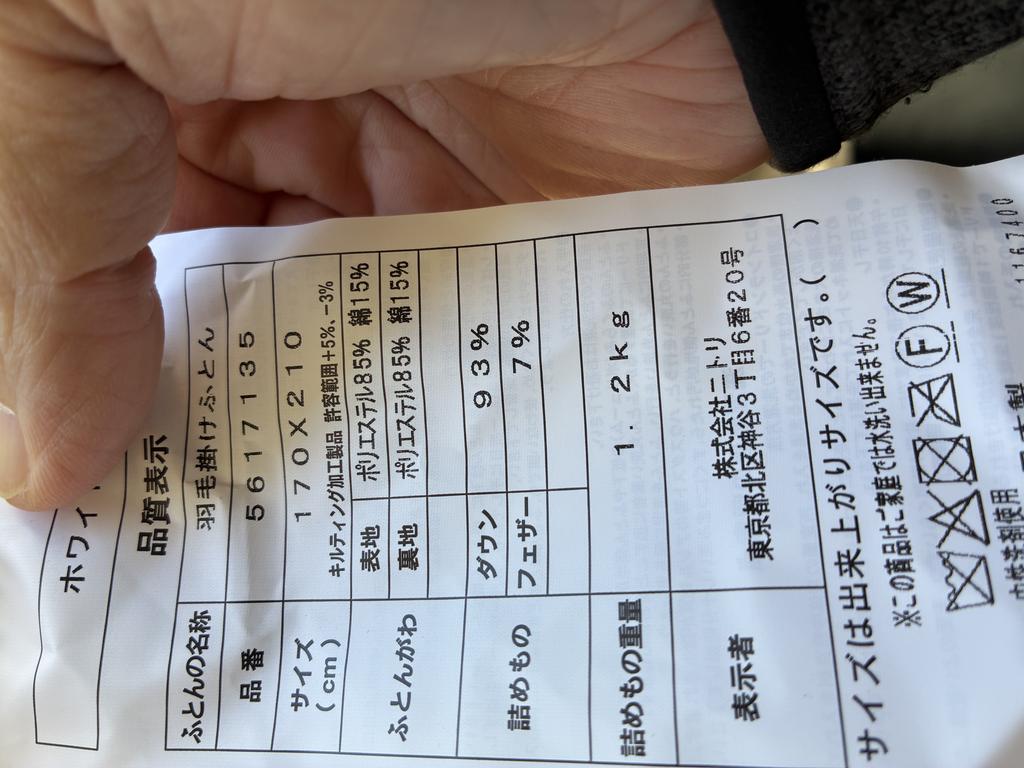 ホワイ
品質表示
ふとんの名称 羽毛掛けふとん
品番 5617135
サイズ(cm) 170X210
キルティング加工製品 許容範囲+5%、-3%
ふとんがわ 表地 ポリエステル85% 綿15%
裏地 ポリエステル85% 綿15%
詰めもの ダウン 93%
フェザー 7%
詰めもの重量 1.2kg
表示者 株式会社ニトリ
東京都北区神谷3丁目6番20号
サイズは出来上がりサイズです。( )
※この商品はご家庭では水洗い出来ません。
F W
中性洗剤使用
1167400